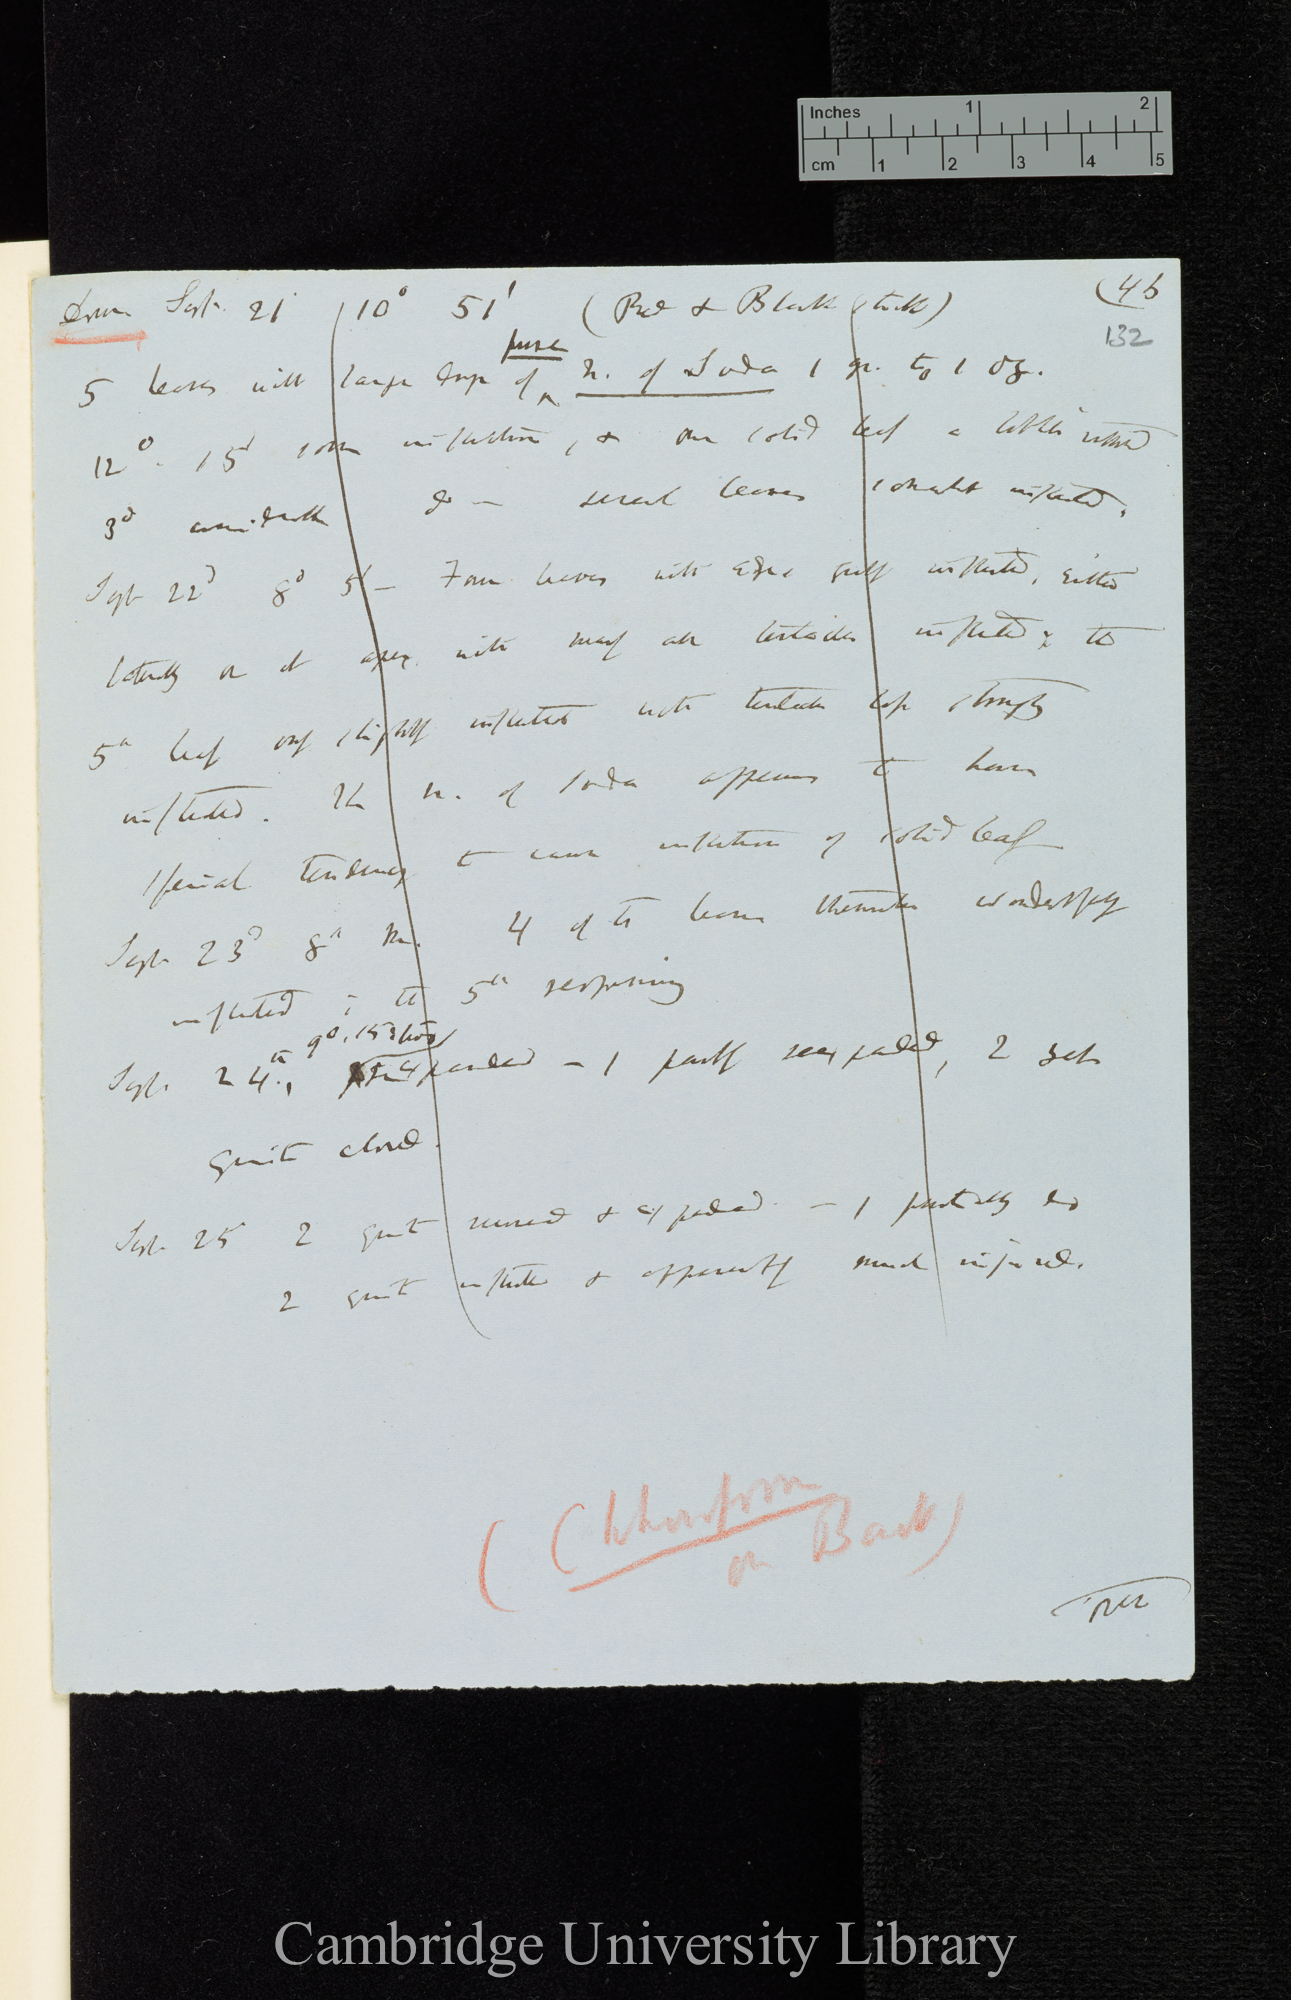 Inches 1 2
cm 1 2 3 4 5
(46
132
Sept. 21 10° 51' (Red & Black stick)
pure
5 leaves with large drop of N. of Soda 1 gr. to 1 oz.
12°. 15' some inflection, & one solid leaf a little
3° considerable do — several leaves somewhat inflected.
Sept 22d 8° 5' — Four leaves with edge greatly inflected, either
laterally or at apex with many all tentacles inflected; the
5th leaf only slightly inflected with tentacles strongly
inflected. The N. of Soda appears to have
special tendency to cause inflection of solid leaf
Sept 23d 8° 4 of the leaves themselves wonderfully
inflected; the 5th reopening
9°. 15'
Sept. 24th, expanded — 1 partly reexpanded, 2
quite closed.
Sept. 25 2 quite renewed & expanded — 1 partially do
2 quite inflected & apparently much injured.
(Chloroform
on Back)
Cambridge University Library